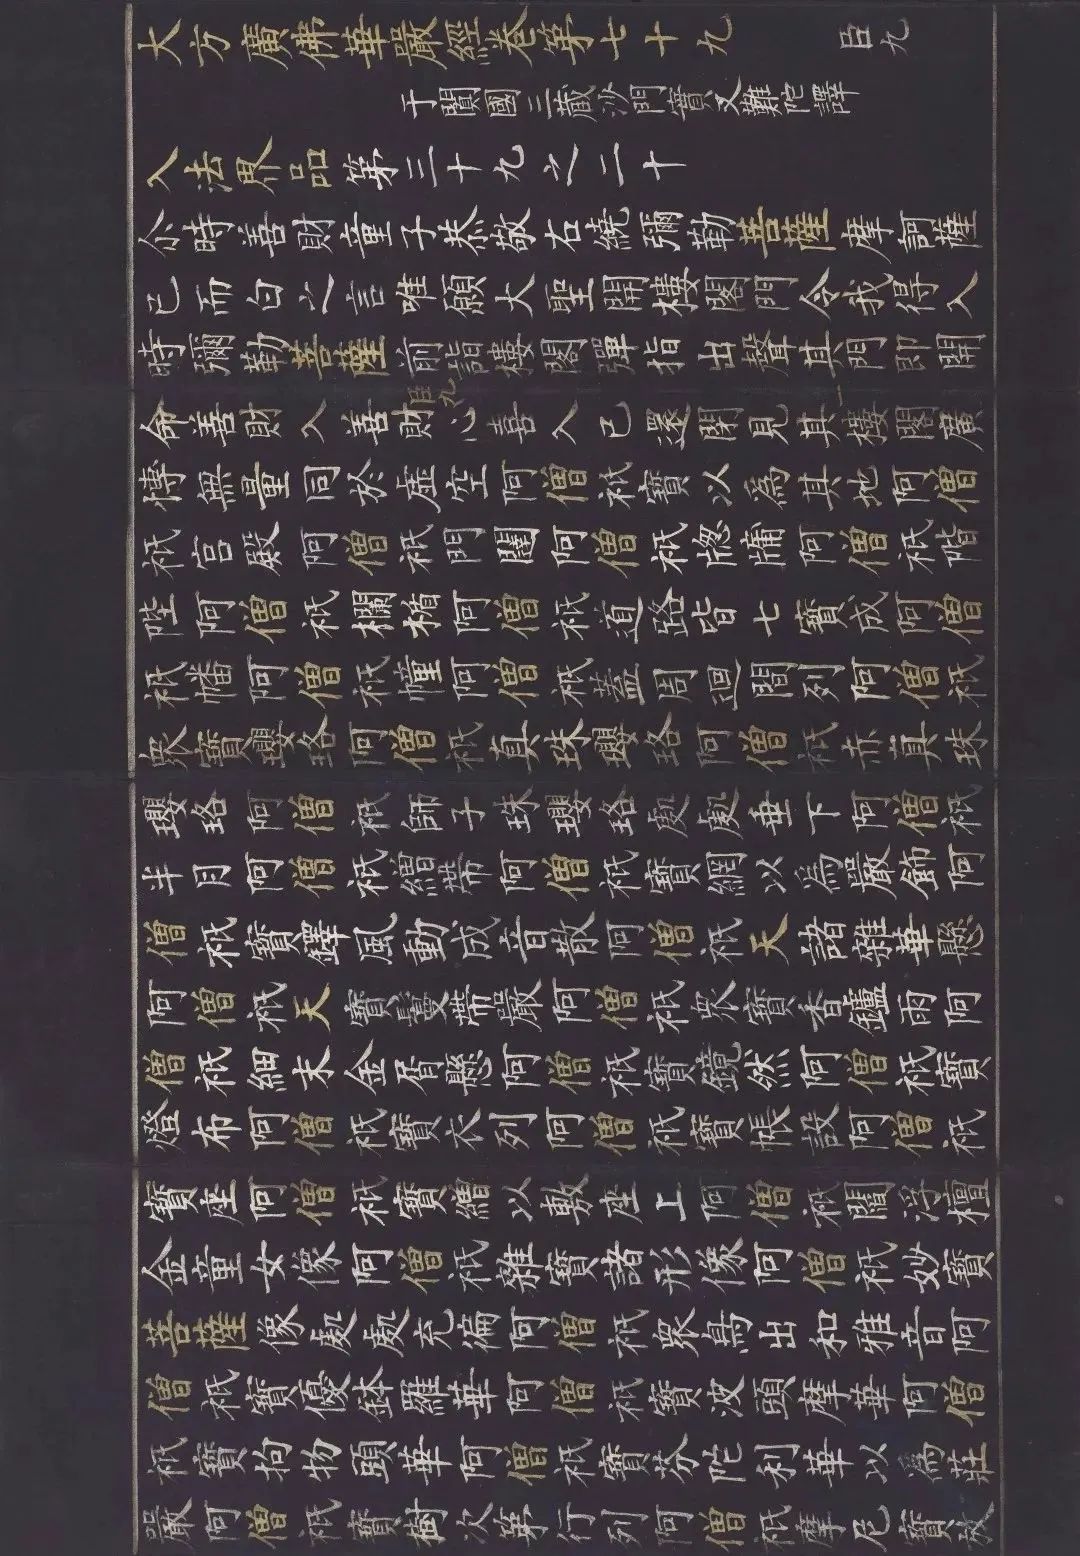 大方廣佛華嚴經卷第七十九 臣九
于闐國三藏沙門實叉難陀譯
入法界品第三十九之二十
尒時善財童子恭敬右繞彌勒菩薩摩訶薩
已而白之言唯願大聖開樓閣門令我得入
時彌勒菩薩前詣樓閣彈指出聲其門即開
命善財入善財心喜入已還閉見其樓閣廣
博無量同於虛空阿僧祇寶以為其地阿僧
祇宮殿阿僧祇門闥阿僧祇牎牖阿僧祇階
陛阿僧祇欄楯阿僧祇道路皆七寶成阿僧
祇幡阿僧祇幢阿僧祇蓋周迴間列阿僧祇
眾寶瓔珞阿僧祇真珠瓔珞阿僧祇赤真珠
瓔珞阿僧祇師子珠瓔珞處處垂下阿僧祇
半月阿僧祇繒帶阿僧祇寶網以為嚴飾阿
僧祇寶鐸風動成音散阿僧祇天諸雜華懸
阿僧祇天寶鬘帶嚴阿僧祇眾寶香鑪雨阿
僧祇細末金屑懸阿僧祇寶鏡然阿僧祇寶
燈布阿僧祇寶衣列阿僧祇寶帳設阿僧祇
寶座阿僧祇寶繒以敷座上阿僧祇閻浮檀
金童女像阿僧祇雜寶諸形像阿僧祇妙寶
菩薩像處處充遍阿僧祇眾鳥出和雅音阿
僧祇寶優鉢羅華阿僧祇寶波頭摩華阿僧
祇寶拘物頭華阿僧祇寶芬陀利華以為莊
嚴阿僧祇寶樹次第行列阿僧祇摩尼寶放